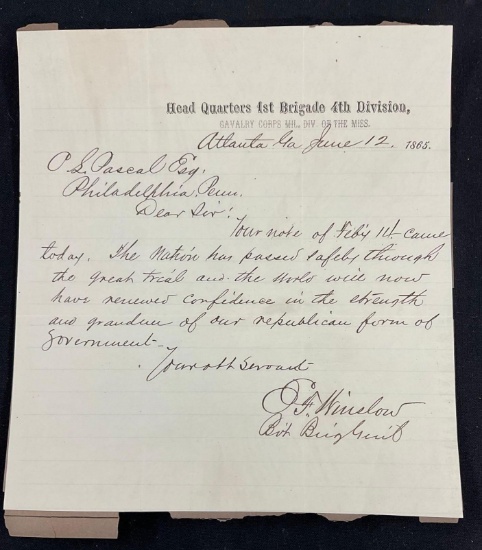 Head Quarters 1st Brigade 4th Division,
CAVALRY CORPS MIL. DIV. OF THE MISS.
Atlanta Ga June 12, 1865.
P S. Pascal Esq.
Philadelphia, Penn.
Dear Sir:
Your note of Feby 14 came
today. The Nation has passed safely through
the great trial and the World will now
have renewed confidence in the strength
and grandeur of our republican form of
Government
Your obt Servant
E F. Winslow
Bvt Brig Genl